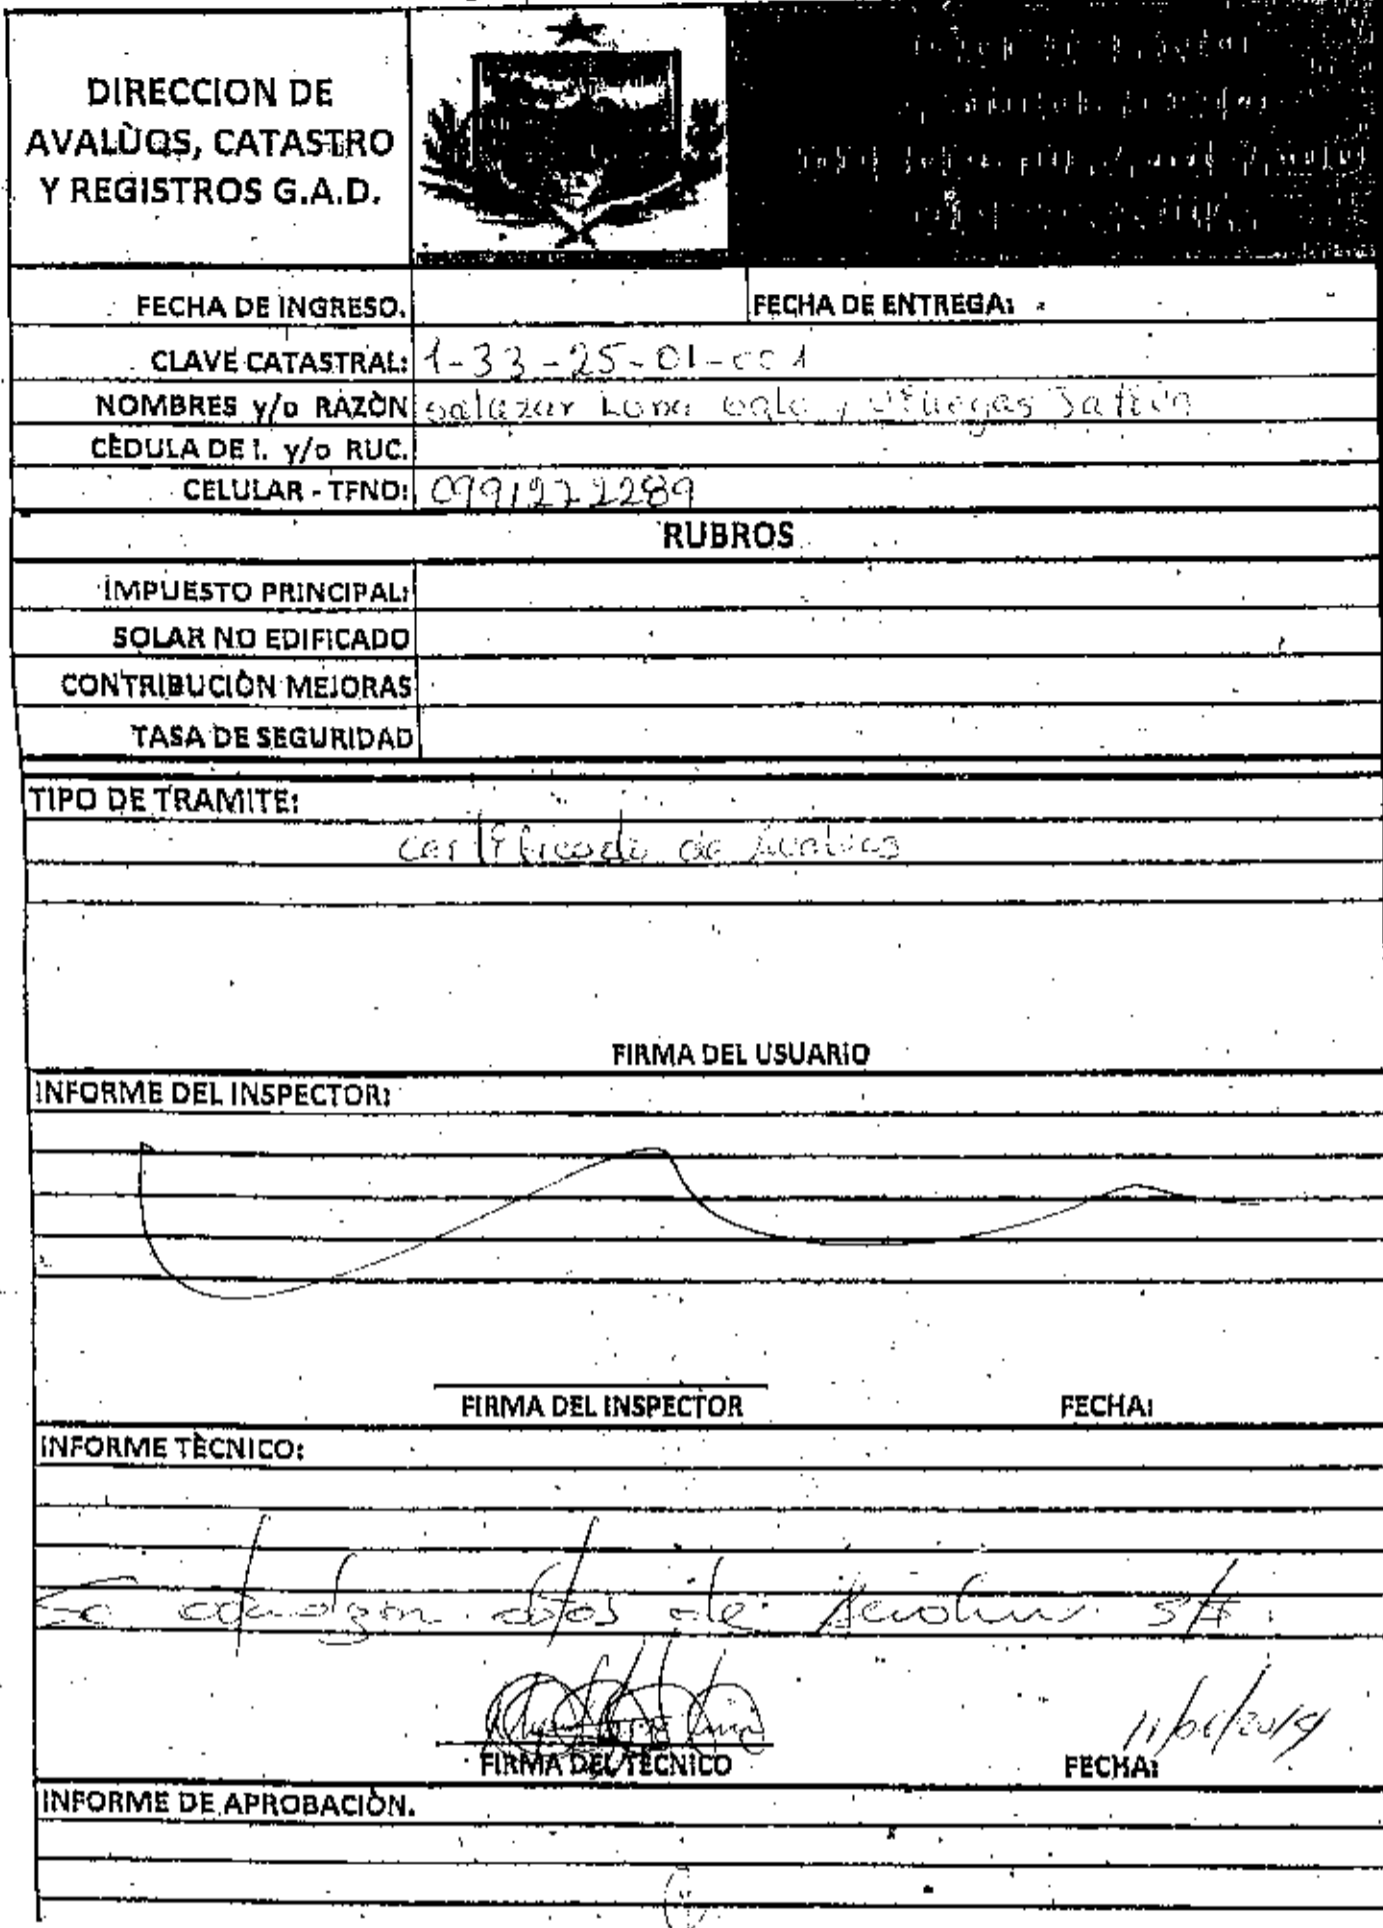 DIRECCION DE
AVALÙOS, CATASTRO
Y REGISTROS G.A.D.
FECHA DE INGRESO.
FECHA DE ENTREGA:
CLAVE CATASTRAL: 1-33-25-01-001
NOMBRES y/o RAZÒN Salazar Luna Galo y
CÈDULA DE I. y/o RUC.
CELULAR - TFNO: 0991272289
RUBROS
IMPUESTO PRINCIPAL:
SOLAR NO EDIFICADO
CONTRIBUCIÒN MEJORAS
TASA DE SEGURIDAD
TIPO DE TRAMITE:
certificado de Avaluos
FIRMA DEL USUARIO
INFORME DEL INSPECTOR:
FIRMA DEL INSPECTOR FECHA:
INFORME TÈCNICO:
datos de
FIRMA DEL TÈCNICO FECHA:
INFORME DE APROBACIÒN.